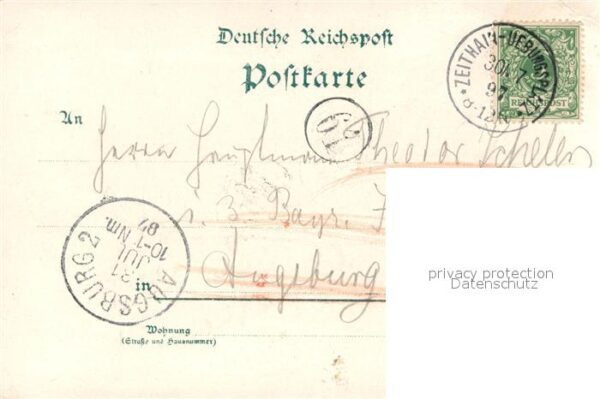 Deutsche Reichspost
Postkarte
ZEITHAIN-UEBUNGSPLATZ
30/7
97
8-12V
REICHSPOST
An
62
Herrn Hauptmann Theodor Scheler
3. Bayr.
AUGSBURG 2
31
JUL
10-1 Nm.
97
in Augsburg
privacy protection
Datenschutz
Wohnung
(Straße und Hausnummer)